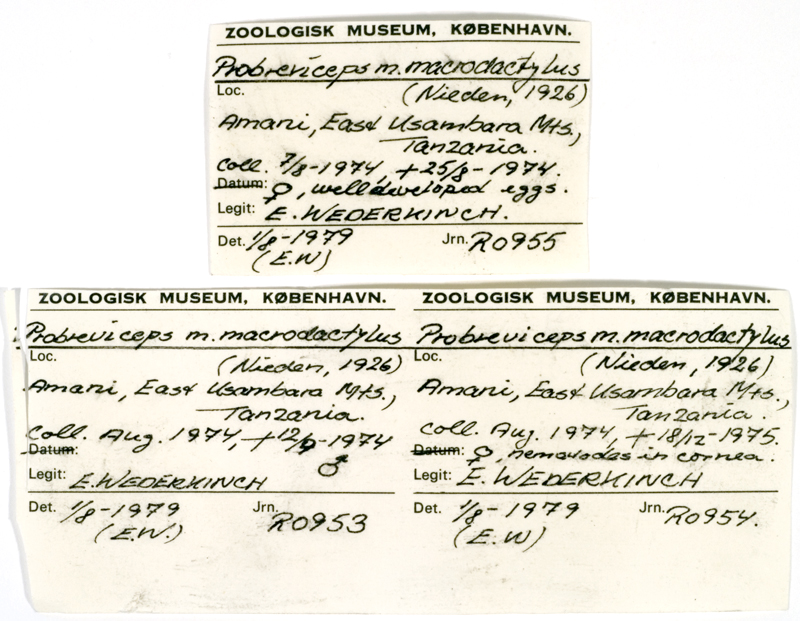 ZOOLOGISK MUSEUM, KØBENHAVN.
Probreviceps m. macrodactylus
Loc. (Nieden, 1926)
Amani, East Usambara Mts.,
Tanzania.
Coll. 7/8-1974, +25/8-1974.
Datum: ♀, welldeveloped eggs.
Legit: E. WEDERKINCH.
Det. 1/8-1979 Jrn. R0955
(E.W)
ZOOLOGISK MUSEUM, KØBENHAVN.
Probreviceps m. macrodactylus
Loc. (Nieden, 1926)
Amani, East Usambara Mts.,
Tanzania.
Coll. Aug. 1974, +12/9-1974
Datum: ♂
Legit: E. WEDERKINCH
Det. 1/8-1979 Jrn. R0953
(E.W.)
ZOOLOGISK MUSEUM, KØBENHAVN.
Probreviceps m. macrodactylus
Loc. (Nieden, 1926)
Amani, East Usambara Mts.,
Tanzania.
Coll. Aug. 1974, +18/12-1975.
Datum: ♀, nematodes in cornea.
Legit: E. WEDERKINCH
Det. 1/8-1979 Jrn. R0954.
(E.W)